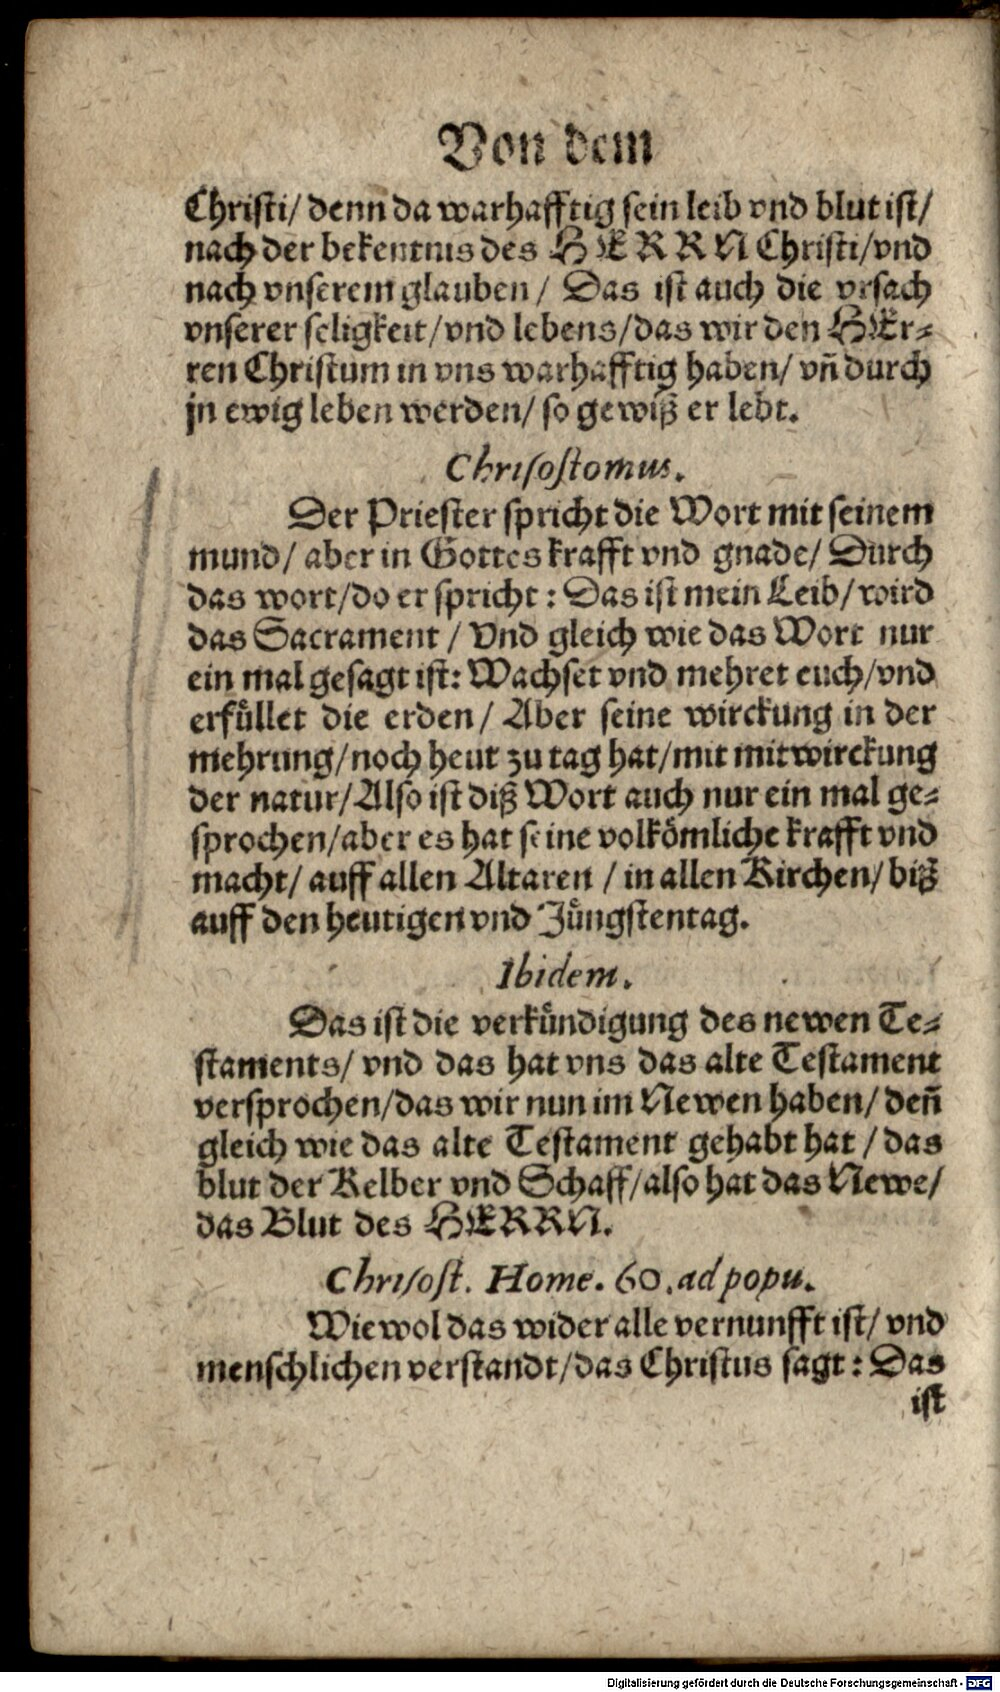 Von dem
Christi/ denn da warhafftig sein leib vnd blut ist/
nach der bekentnis des HERRN Christi/vnd
nach vnserem glauben/ Das ist auch die vrsach
vnserer seligkeit/vnd lebens/das wir den HEr⸗
ren Christum in vns warhafftig haben/ vñ durch
jn ewig leben werden/ so gewiß er lebt.
Chrisostomus.
Der Priester spricht die Wort mit seinem
mund/ aber in Gottes krafft vnd gnade/ Durch
das wort/do er spricht: Das ist mein Leib/ wird
das Sacrament/ Vnd gleich wie das Wort nur
ein mal gesagt ist: Wachset vnd mehret euch/vnd
erfüllet die erden/ Aber seine wirckung in der
mehrung/noch heut zu tag hat/mit mitwirckung
der natur/Also ist diß Wort auch nur ein mal ge⸗
sprochen/aber es hat seine volkömliche krafft vnd
macht/ auff allen Altaren/ in allen Kirchen/ biß
auff den heutigen vnd Jüngstentag.
Ibidem.
Das ist die verkündigung des newen Te⸗
staments/ vnd das hat vns das alte Testament
versprochen/das wir nun im Newen haben/ deñ
gleich wie das alte Testament gehabt hat/ das
blut der Kelber vnd Schaff/also hat das Newe/
das Blut des HERRN.
Chrisost. Home. 60. ad popu.
Wiewol das wider alle vernunfft ist/ vnd
menschlichen verstandt/das Christus sagt: Das
ist
Digitalisierung gefördert durch die Deutsche Forschungsgemeinschaft - DFG